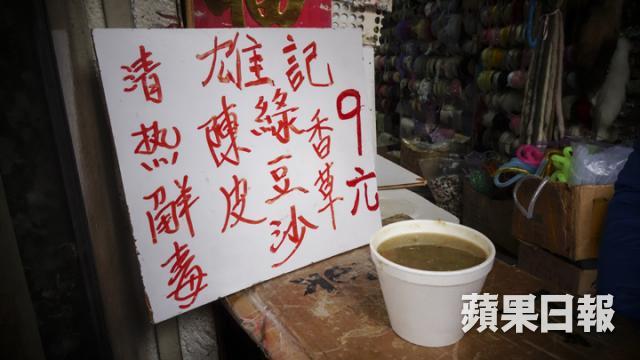 雄記
清热解毒
陳皮
綠豆沙
香草
9元
蘋果日報